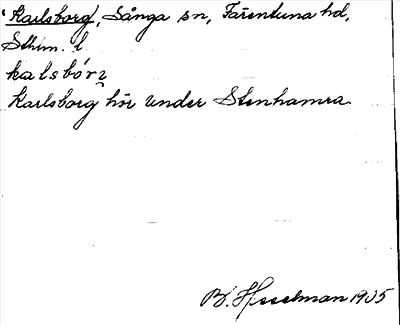 Karlsborg, Sånga sn, Färentuna hd,
Sthlm. l
kalsbórz
Karlsborg hör under Stenhamra.
B. Hesselman 1905